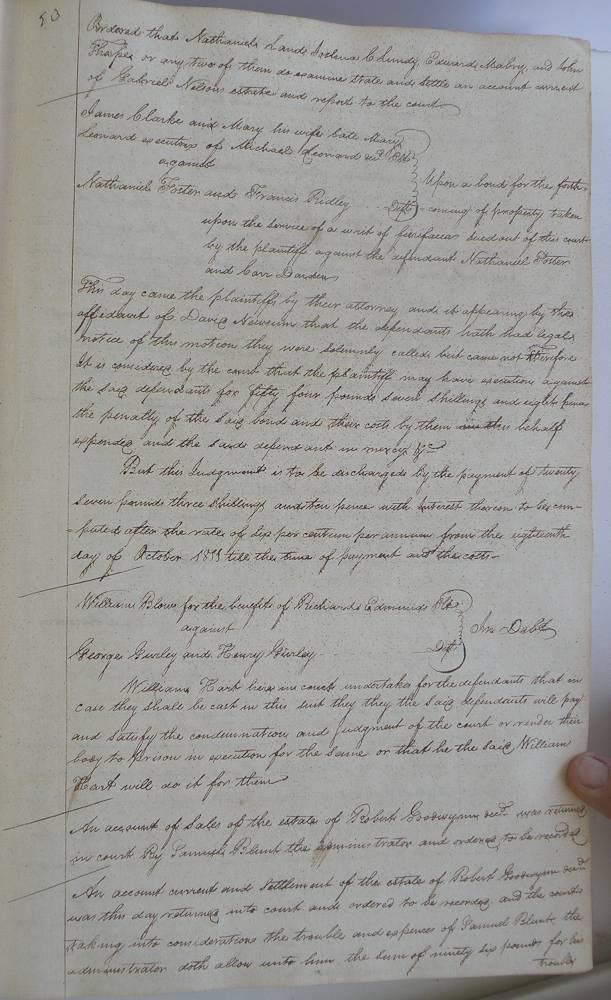 53
Ordered that Nathaniel Land, Joshua Clundy, Edwards Mabry, and John
Tharpe or any two of them do examine state and settle an account current
of Gabriel Nelsons estate and report to the court
James Clarke and Mary his wife late Mary
Leonard executrix of Michael Leonard decd. Plts
against
Upon a bond for the forth-
Nathaniel Foster and Francis Ridley Defts
-coming of property taken
upon the service of a writ of fierifacias sued out of this court
by the plaintiff against the defendant Nathaniel Foster
and Carr Darden
This day came the plaintiffs by their attorney and it appearing by the
affidavit of David Newsum that the defendants hath had legal
notice of this motion they were solemnly called but came not Therefore
It is considered by the court that the plaintiff may have execution against
the said defendants for fifty four pounds seven shillings and eight pence
the penalty of the said bond and their costs by them in this behalf
expended and the said defendant in mercy &c
But this Judgment is to be discharged by the payment of twenty
seven pounds three shillings and ten pence with interest thereon to be com-
-puted after the rate of six per centum per annum from the eighteenth
day of October 1811 till the time of payment and the costs-
William Blow for the benefit of Richard Edmunds Plt
against
In Debt
George Gurley and Henry Gurley Defts
William Hart here in court undertakes for the defendants that in
case they shall be cast in this suit they they the said defendants will pay
and satisfy the condemnation and judgment of the court or render their
body to prison in execution for the same or that he the said William
Hart will do it for them
An account of sales of the estate of Robert Goodwynn decd. was returned
in court By Samuel Blunt the administrator and ordered to be recorded
An account current and settlement of the estate of Robert Goodwynn decd.
was this day returned into court and ordered to be recorded, and the court
taking into consideration the trouble and expences of Samuel Blunt the
administrator doth allow unto him the sum of ninety six pounds for his
trouble